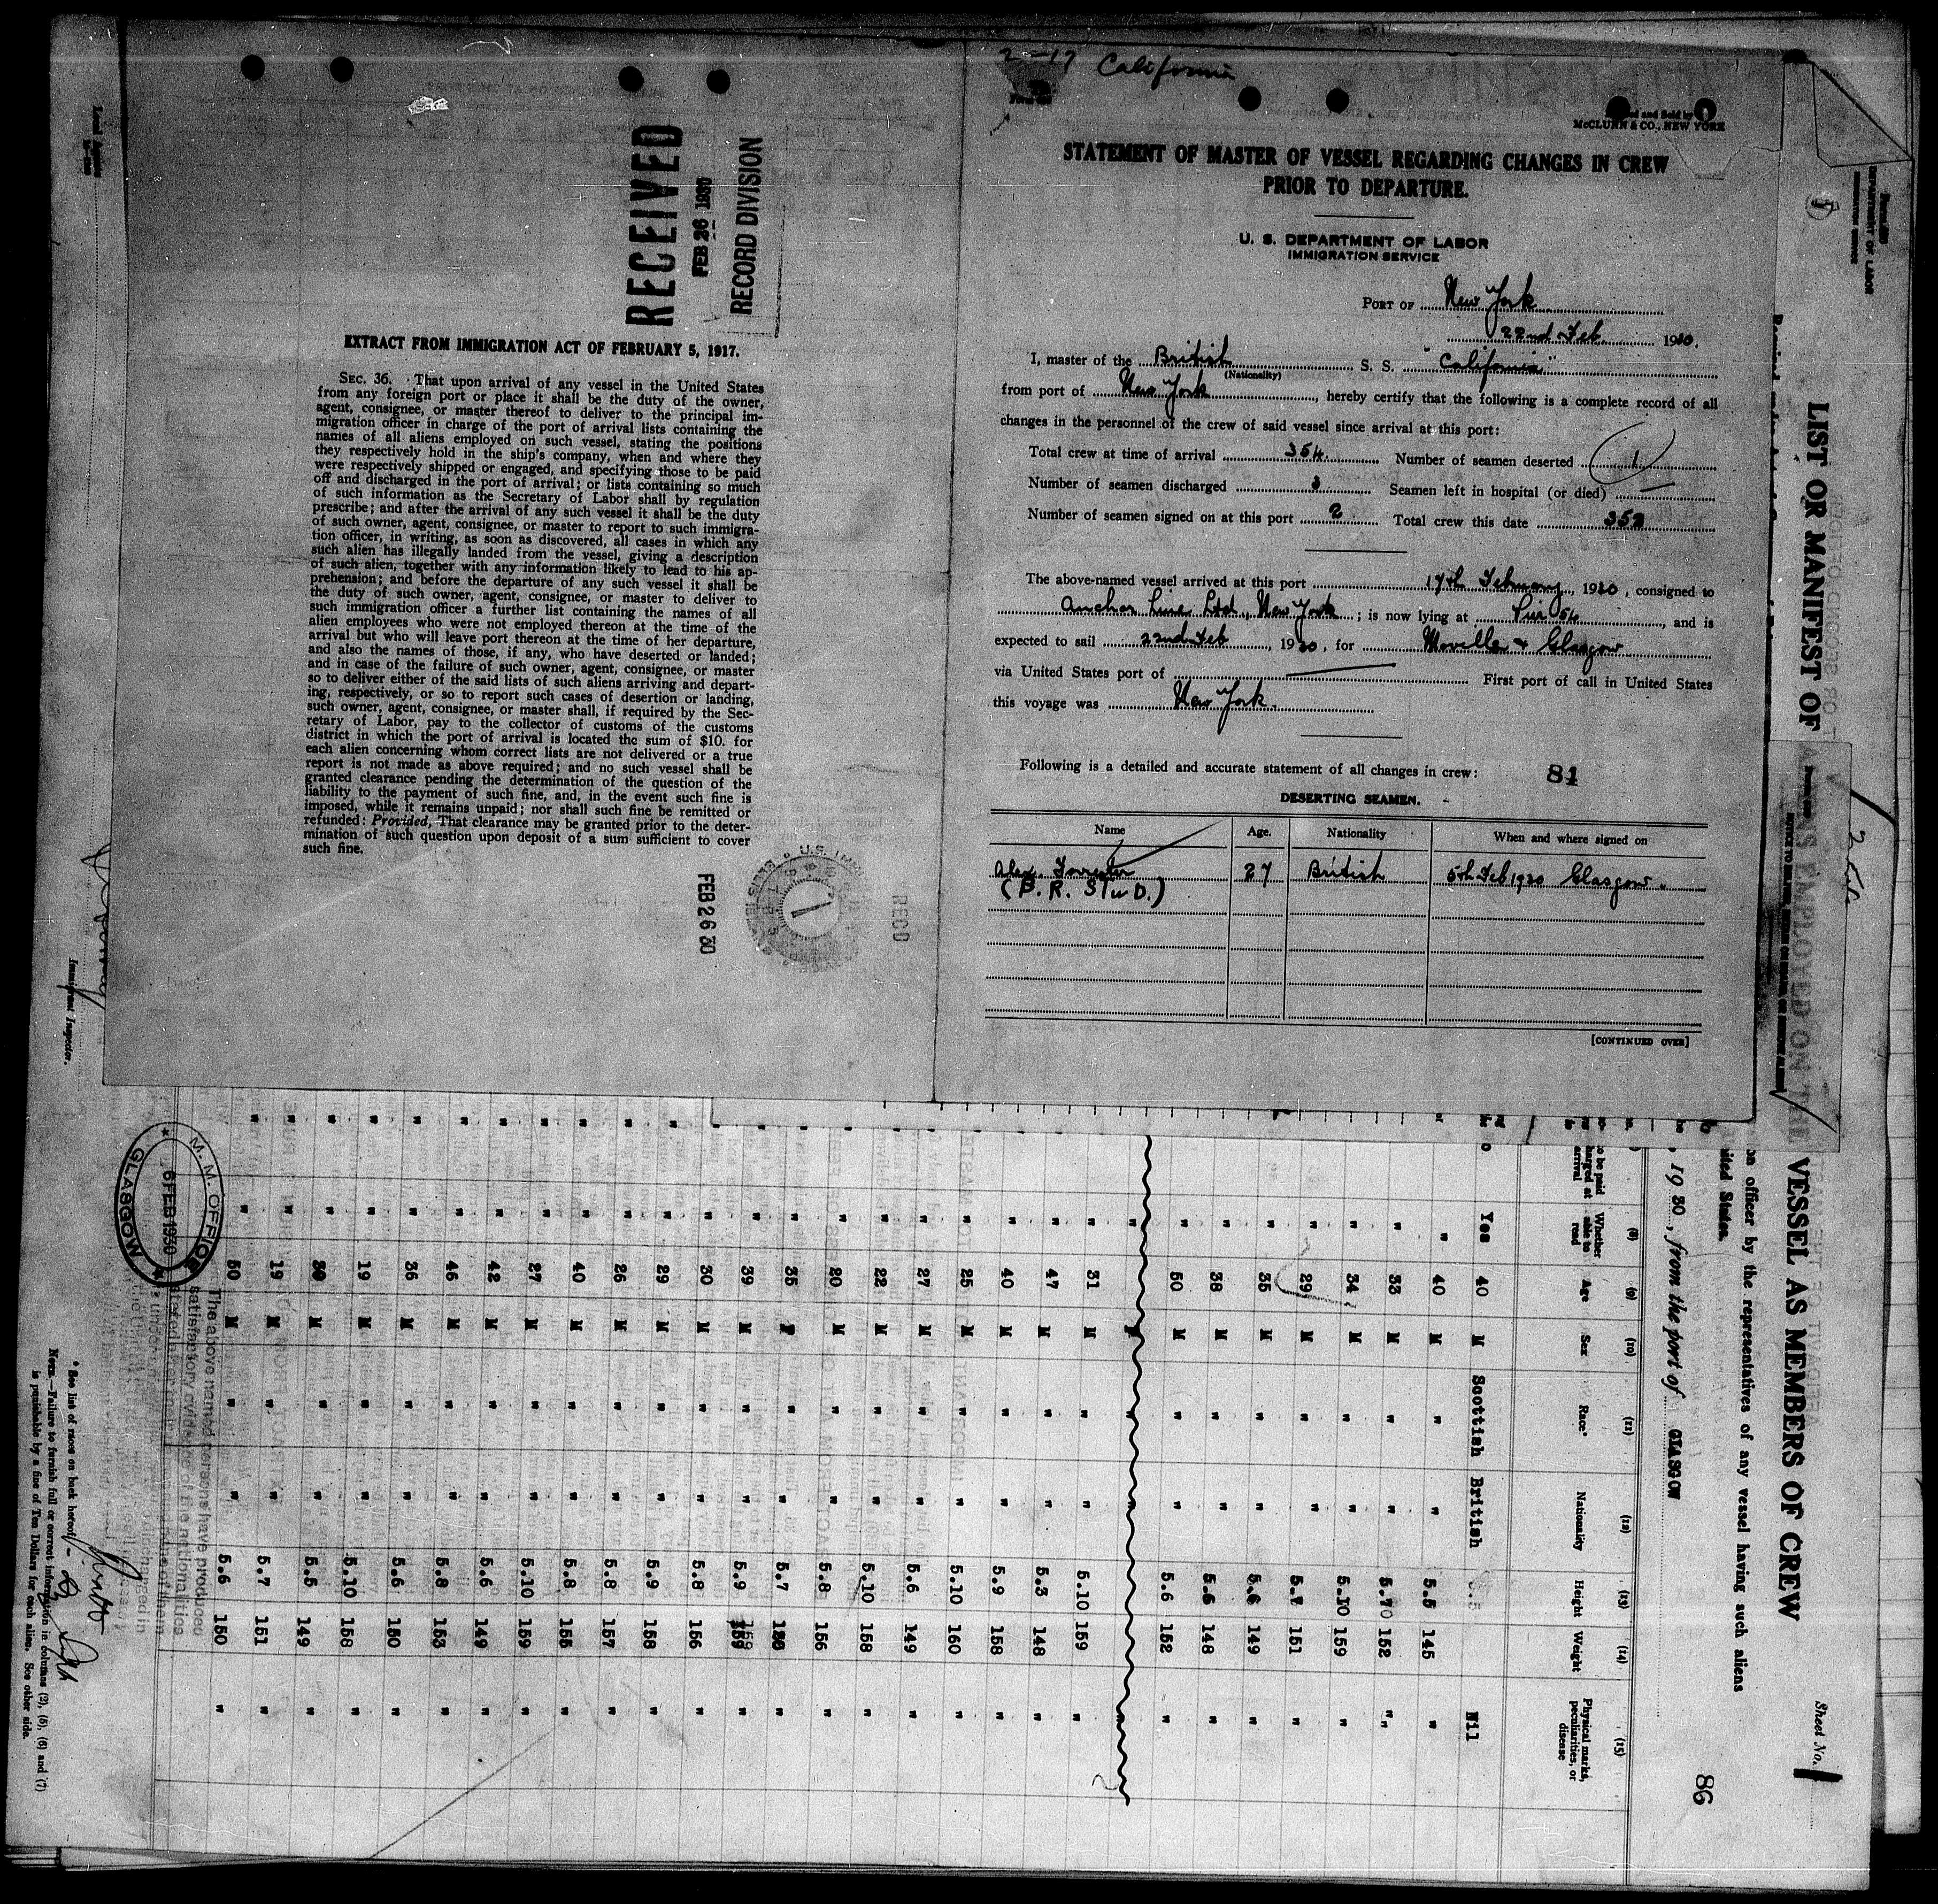 RECEIVED
FEB 26 1930
RECORD DIVISION
EXTRACT FROM IMMIGRATION ACT OF FEBRUARY 5, 1917.
SEC. 36. That upon arrival of any vessel in the United States
from any foreign port or place it shall be the duty of the owner,
agent, consignee, or master thereof to deliver to the principal im-
migration officer in charge of the port of arrival lists containing the
names of all aliens employed on such vessel, stating the positions
they respectively hold in the ship's company, when and where they
were respectively shipped or engaged, and specifying those to be paid
off and discharged in the port of arrival; or lists containing so much
of such information as the Secretary of Labor shall by regulation
prescribe; and after the arrival of any such vessel it shall be the duty
of such owner, agent, consignee, or master to report to such immigra-
tion officer, in writing, as soon as discovered, all cases in which any
such alien has illegally landed from the vessel, giving a description
of such alien, together with any information likely to lead to his ap-
prehension; and before the departure of any such vessel it shall be
the duty of such owner, agent, consignee, or master to deliver to
such immigration officer a further list containing the names of all
alien employees who were not employed thereon at the time of the
arrival but who will leave port thereon at the time of her departure,
and also the names of those, if any, who have deserted or landed;
and in case of the failure of such owner, agent, consignee, or master
so to deliver either of the said lists of such aliens arriving and depart-
ing, respectively, or so to report such cases of desertion or landing,
such owner, agent, consignee, or master shall, if required by the Sec-
retary of Labor, pay to the collector of customs of the customs
district in which the port of arrival is located the sum of $10. for
each alien concerning whom correct lists are not delivered or a true
report is not made as above required; and no such vessel shall be
granted clearance pending the determination of the question of the
liability to the payment of such fine, and, in the event such fine is
imposed, while it remains unpaid; nor shall such fine be remitted or
refunded: Provided, That clearance may be granted prior to the deter-
mination of such question upon deposit of a sum sufficient to cover
such fine.
FEB 26 30
RECD
2-17 California
and Sold by
McCLURN & CO., NEW YORK
STATEMENT OF MASTER OF VESSEL REGARDING CHANGES IN CREW
PRIOR TO DEPARTURE.
U. S. DEPARTMENT OF LABOR
IMMIGRATION SERVICE
PORT OF New York
22nd Feb. 1930.
I, master of the British S. S. "California"
(Nationality)
from port of New York, hereby certify that the following is a complete record of all
changes in the personnel of the crew of said vessel since arrival at this port:
Total crew at time of arrival 354. Number of seamen deserted 1
Number of seamen discharged 3 Seamen left in hospital (or died) —
Number of seamen signed on at this port 2 Total crew this date 352
The above-named vessel arrived at this port 17th February, 1930, consigned to
Anchor Line Ltd., New York; is now lying at Pier 54, and is
expected to sail 22nd Feb, 1930, for Moville & Glasgow
via United States port of — First port of call in United States
this voyage was New York.
Following is a detailed and accurate statement of all changes in crew: 81
DESERTING SEAMEN.
Name Age. Nationality When and where signed on
Alex. Forrester 27 British 5th Feb 1930 Glasgow.
(B. R. Stwd.)
[CONTINUED OVER]
LIST OR MANIFEST OF ALIENS EMPLOYED ON THE VESSEL AS MEMBERS OF CREW
Sheet No. 1
on officer by the representatives of any vessel having such aliens
ited States.
, 1930, from the port of GLASGOW
86
(8) (9) (10) (11) (12) (13) (14) (15)
Whether able to read Age Sex Race* Nationality Height Weight Physical marks, peculiarities, or disease
Yes 40 M Scottish British Nil
" 40 M " " 5.5 145 "
" 33 M " " 5.70 152 "
" 34 M " " 5.10 159 "
" 29 M " " 5.7 151 "
" 35 M " " 5.6 149 "
" 38 M " " 5.5 148 "
" 50 M " " 5.6 152 "
" 31 M " " 5.10 159 "
" 47 M " " 5.3 148 "
" 40 M " " 5.9 158 "
" 25 M " " 5.10 160 "
" 27 M " " 5.6 149 "
" 22 M " " 5.10 158 "
" 20 M " " 5.8 156 "
" 35 " " 5.7 "
" 39 M " " 5.9 159 "
" 30 M " " 5.8 156 "
" 29 M " " 5.9 158 "
" 26 M " " 5.8 157 "
" 40 M " " 5.8 155 "
" 27 M " " 5.10 159 "
" 42 M " " 5.6 149 "
" 46 M " " 5.8 153 "
" 36 M " " 5.6 150 "
" 19 M " " 5.10 158 "
" 30 M " " 5.5 149 "
" 19 M " " 5.7 151 "
" 50 M " " 5.6 150 "
M. M. OFFICE
6 FEB 1930
GLASGOW
The above named persons have produced
satisfactory evidence of the nationalities
Immigrant Inspector.
* See list of races on back hereof.
NOTE.—Failure to furnish full or correct information in columns (2), (5), (6) and (7)
is punishable by a fine of Ten Dollars for each alien. See other side.